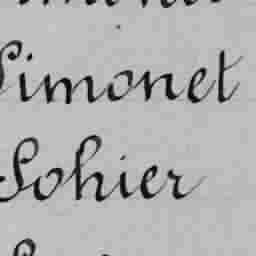 Simonet
Sohier